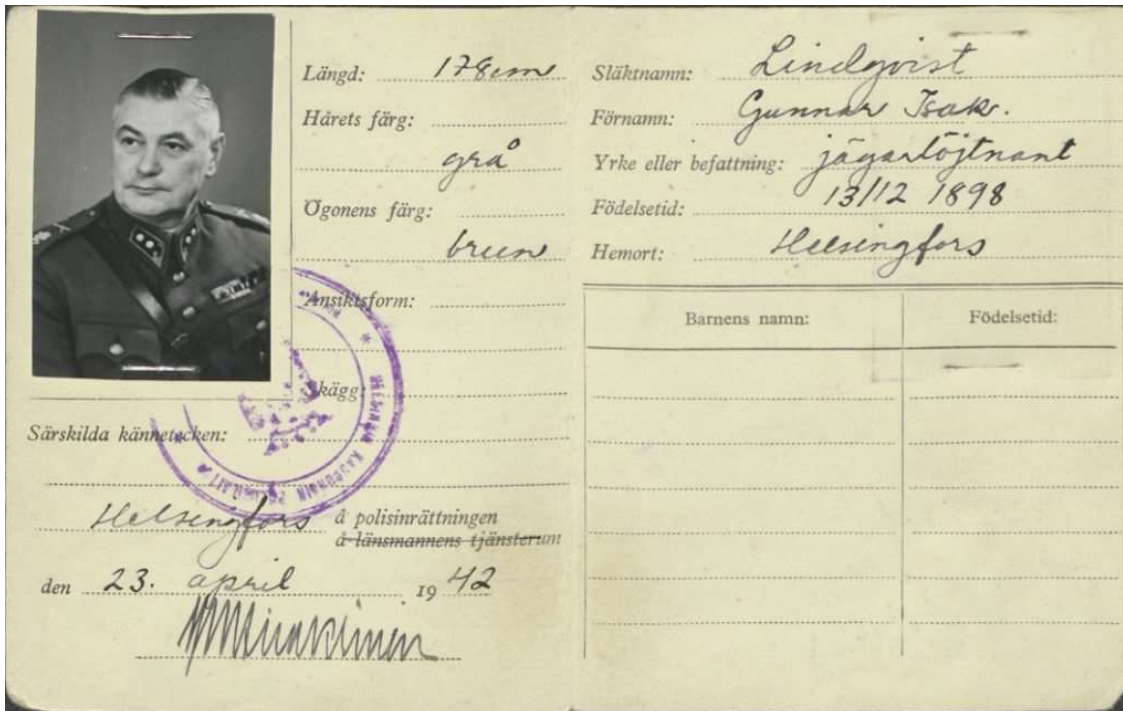 Längd: 178cm
Hårets färg:
grå
Ögonens färg:
brun
Ansiktsform:
Skägg:
Särskilda kännetecken:
Helsingfors å polisinrättningen
å länsmannens tjänsterum
den 23. april 1942
Släktnamn: Lindqvist
Förnamn: Gunnar Isak.
Yrke eller befattning: jägarlöjtnant
Födelsetid: 13/12 1898
Hemort: Helsingfors
Barnens namn: Födelsetid:
HELSINGIN KAUPUNGIN POLIISILAITOS